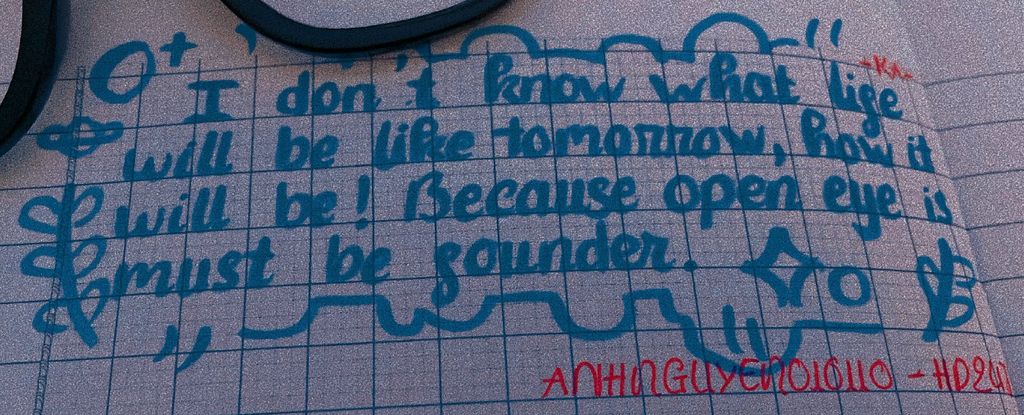 I don't know what lige
-KA-
will be like tomorrow, how it
will be! Because open eye is
must be sounder.
ANHNGUYEN010110 - HD24